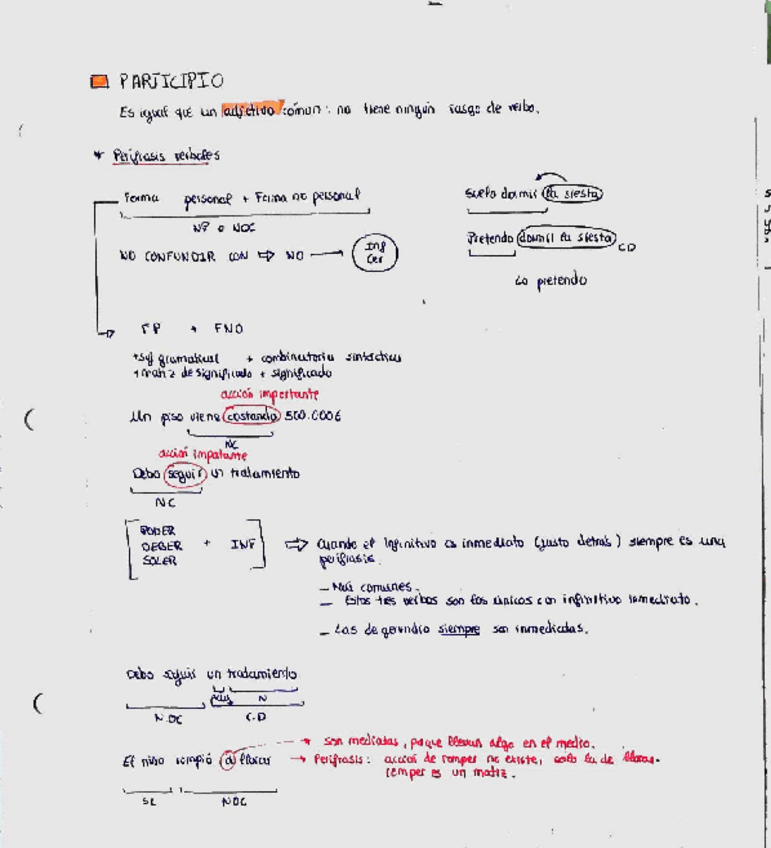 PARTICIPIO
Es igual que un adjetivo común: no tiene ningún rasgo de verbo.
* Perífrasis verbales
Forma personal + Forma no personal
Suelo dormir la siesta
NP o NOC
Pretendo dormir la siesta CD
NO CONFUNDIR CON ⇨ NO → Inf Ger
Lo pretendo
FP + FNO
+ sig gramatical + combinatoria sintáctica
+ matiz de significado + significado
acción importante
Un piso viene costando 500.000€
NC
acción impotante
Debo seguir un tratamiento
NC
PODER
DEBER + INF ⇨ Cuando el Infinitivo es inmediato (justo detrás) siempre es una
SOLER
perífrasis.
– Más comunes.
– Estos tres verbos son los únicos con infinitivo inmediato.
– Las de gerundio siempre son inmediatas.
Debo seguir un tratamiento
N
NOC C.D
→ son mediatas, porque llevan algo en el medio.
El niño rompió a llorar → Perífrasis: acción de romper no existe, solo la de llorar.
romper es un matiz.
NOC